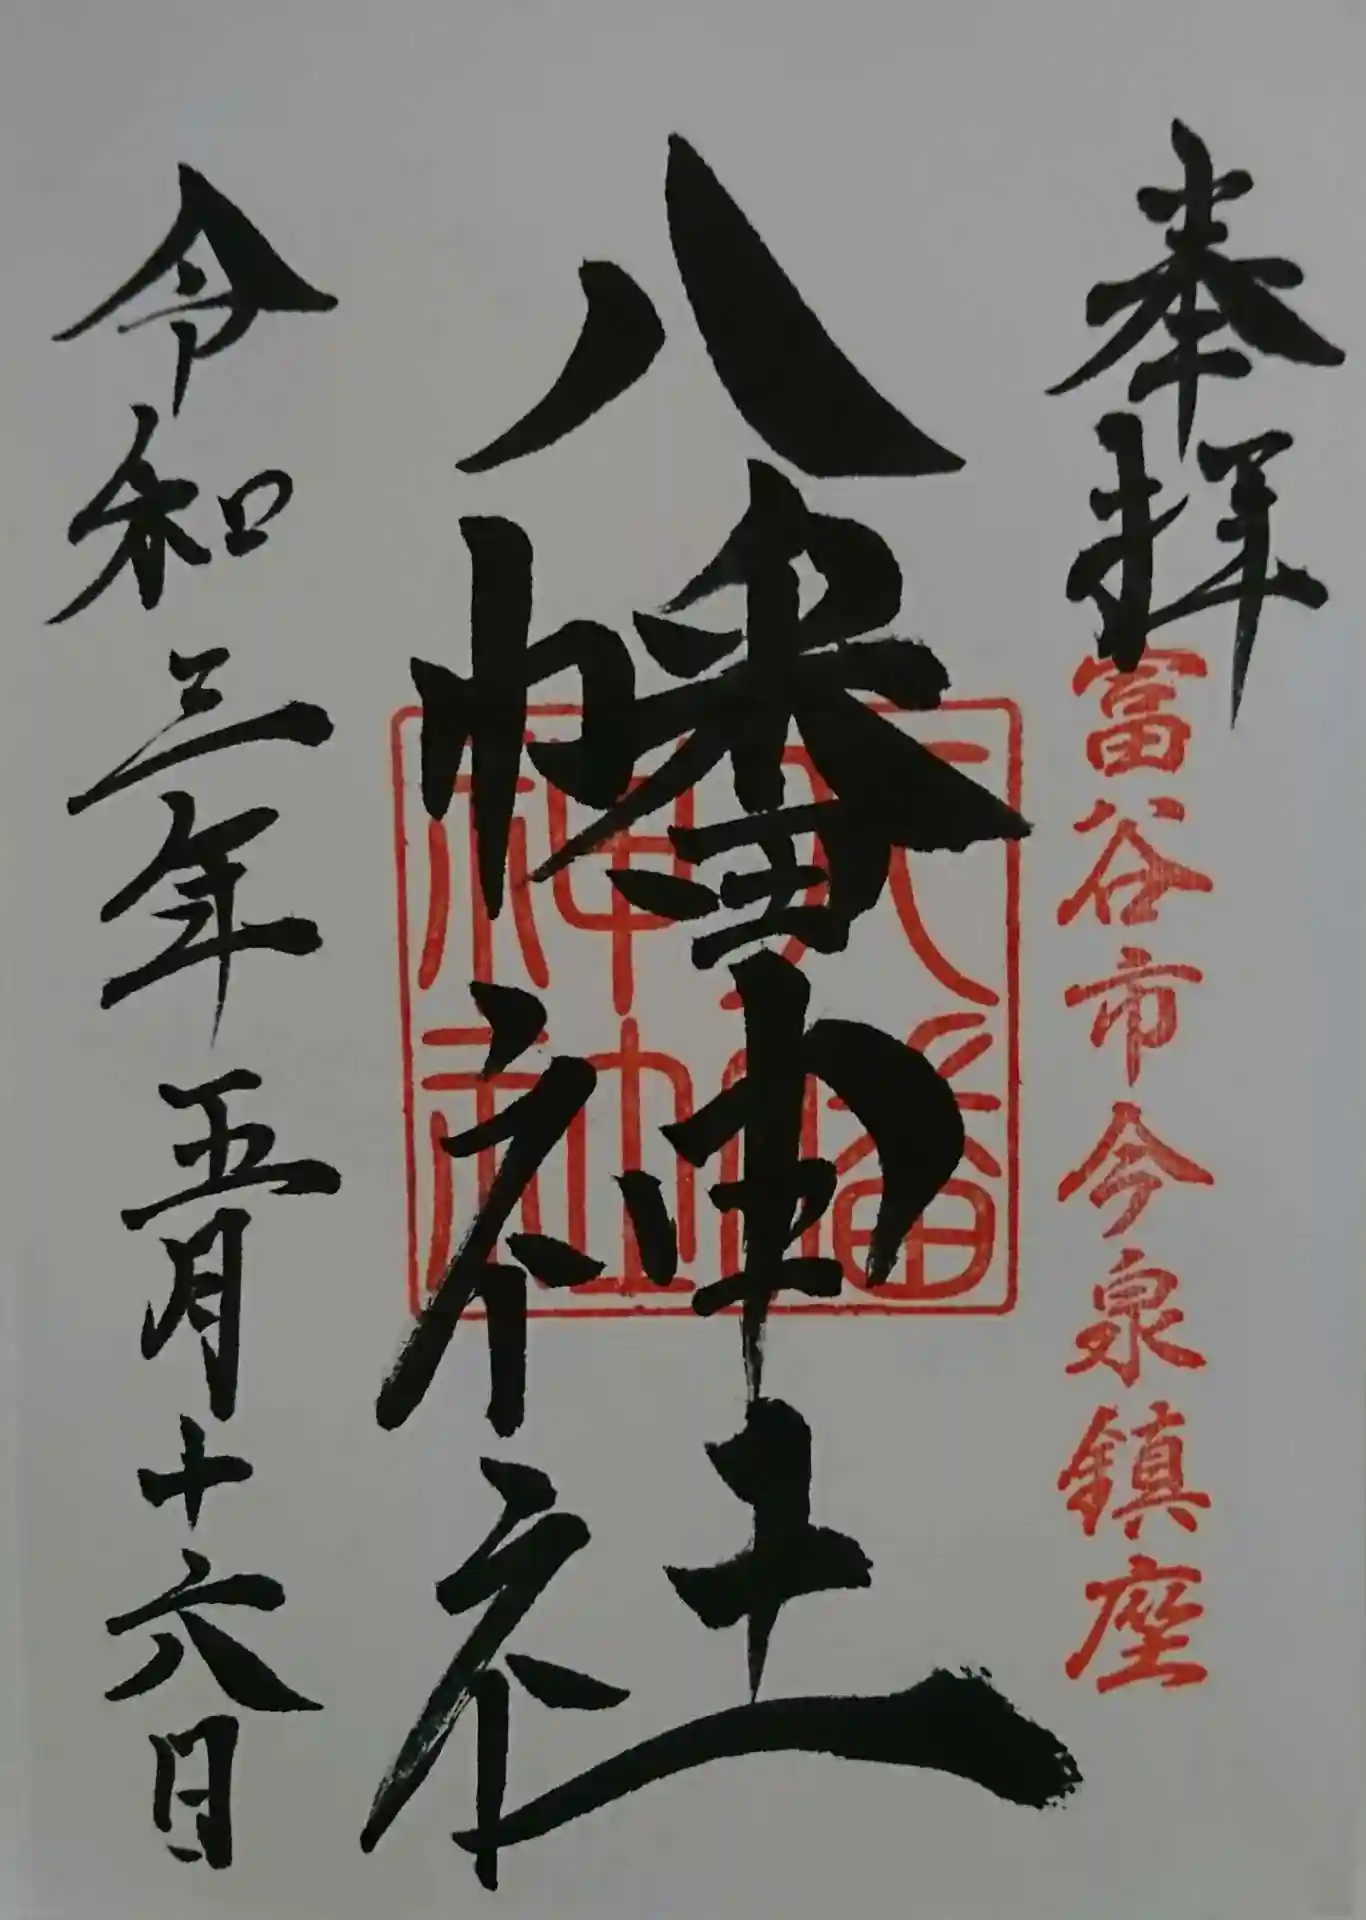 奉拝
富谷市今泉鎮座
八幡神社
八幡
神社
令和三年五月十六日